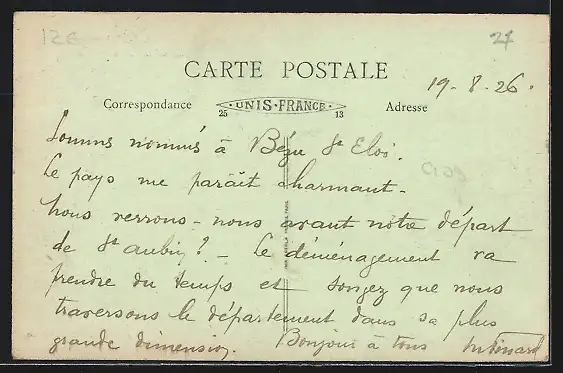 27
CARTE POSTALE
19-8-26.
Correspondance
UNIS-FRANCE
Adresse
25
13
Sommes nommés à Bézu St Eloi.
Le pays me paraît charmant-
Nous verrons-nous avant notre départ
de St Aubin? - Le déménagement va
prendre du temps et songez que nous
traversons le département dans sa plus
grande dimension. Bonjour à tous